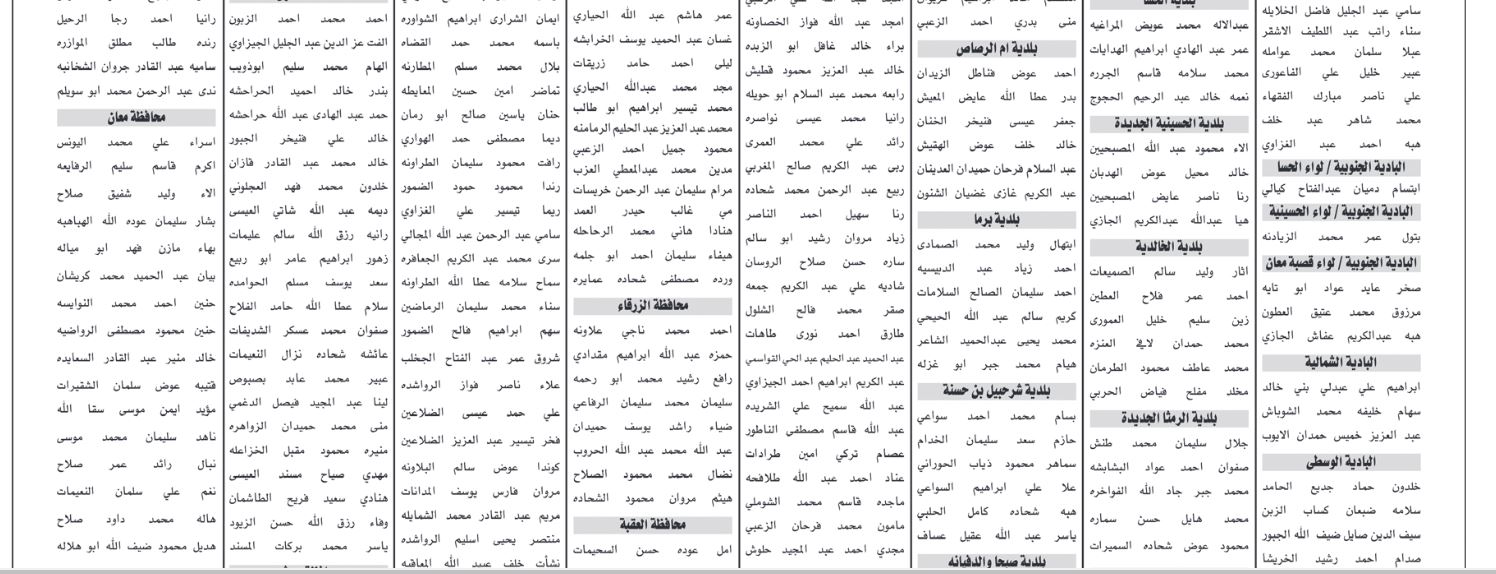 سامي عبد الجليل فاضل الخلايله
سناء راتب عبد اللطيف الاشقر
عبلا سلمان محمد عوامله
عبير خليل علي الفاعورى
علي ناصر مبارك الفقهاء
محمد شاهر عبد خلف
هبه احمد عبد الغزاوي
البادية الجنوبية / لواء الحسا
ابتسام دميان عبدالفتاح كيالي
البادية الجنوبية / لواء الحسينية
بتول عمر محمد الزيادنه
البادية الجنوبية / لواء قصبة معان
صخر عايد عواد ابو تايه
مرزوق محمد عتيق العطون
هبه عبدالكريم عفاش الجازي
البادية الشمالية
ابراهيم علي عبدلي بني خالد
سهام خليفه محمد الشوباش
عبد العزيز خميس حمدان الايوب
البادية الوسطى
خلدون حماد جديع الحامد
سلامه ضبعان كساب الزبن
سيف الدين صايل ضيف الله الجبور
صدام احمد رشيد الخريشا
عبدالاله محمد عويض المراغيه
عمر عبد الهادي ابراهيم الهدايات
محمد سلامه قاسم الجرره
نعمه خالد عبد الرحيم الحجوج
بلدية الحسينية الجديدة
الاء محمود عبد الله المصبحيين
خالد محيل عوض الهدبان
رنا ناصر عايض المصبحيين
هيا عبدالله عبدالكريم الجازي
بلدية الخالدية
اثار وليد سالم الصميعات
احمد عمر فلاح العطين
زين سليم خليل العمورى
محمد حمدان لافي العنزه
محمد عاطف محمود الطرمان
مخلد مفلح فياض الحربي
بلدية الرمثا الجديدة
جلال سليمان محمد طنش
صفوان احمد عواد البشابشه
محمد جبر جاد الله الفواخره
محمد هايل حسن سماره
محمود عوض شحاده السميرات
منى بدري احمد الزعبي
بلدية ام الرصاص
احمد عوض فناطل الزيدان
بدر عطا الله عايض المعيش
جعفر عيسى فنيخر الخنان
خالد خلف عوض الهقيش
عبد السلام فرحان حميدان العدينان
عبد الكريم غازى غضيان الشنون
بلدية برما
ابتهال وليد محمد الصمادى
احمد زياد عبد الدبيسيه
احمد سليمان الصالح السلامات
كريم سالم عبد الله الحيحي
محمد يحيى عبدالحميد الشاعر
هيام محمد جبر ابو غزله
بلدية شرحبيل بن حسنة
بسام محمد احمد سواعي
حازم سعد سليمان الخدام
سماهر محمود ذياب الحوراني
علا علي ابراهيم السواعي
هبه شحاده كامل الحلبي
ياسر عبد الله عقيل عساف
بلدية صبحا والدفيانه
امجد عبد الله فواز الخصاونه
براء خالد غافل ابو الزبده
خالد عبد العزيز محمود قطيش
رابعه محمد عبد السلام ابو حويله
رانيا محمد عيسى نواصره
رائد علي محمد العمرى
ربى عبد الكريم صالح المغربي
ربيع عبد الرحمن محمد شحاده
رنا سهيل احمد الناصر
زياد مروان رشيد ابو سالم
ساره حسن صلاح الروسان
شاديه علي عبد الكريم جمعه
صقر محمد فالح الشلول
طارق احمد نورى طاهات
عبد الحميد عبد الحليم عبد الحي القواسمي
عبد الكريم ابراهيم احمد الجيزاوي
عبد الله سميح علي الشريده
عبد الله قاسم مصطفى الناطور
عصام تركي امين طرادات
عناد احمد عبد الله طلافحه
ماجده قاسم محمد الشوملي
مامون محمد فرحان الزعبي
مجدي احمد عبد المجيد حلوش
عمر هاشم عبد الله الحياري
غسان عبد الحميد يوسف الخرابشه
ليلى احمد حامد زريقات
مجد محمد عبدالله الحياري
محمد تيسير ابراهيم ابو طالب
محمد عبد العزيز عبد الحليم الرمامنه
محمود جميل احمد الزعبي
مدين محمد عبدالمعطي العزب
مرام سليمان عبد الرحمن خريسات
مي غالب حيدر العمد
هنادا هاني محمد الرحاحله
هيفاء سليمان احمد ابو جلمه
ورده مصطفى شحاده عمايره
محافظة الزرقاء
احمد محمد ناجي علاونه
حمزه عبد الله ابراهيم مقدادي
رافع رشيد محمد ابو رحمه
سليمان محمد سليمان الرفاعي
ضياء راشد يوسف حميدان
عبد الله محمد عبد الله الحروب
نضال محمد محمود الصلاح
هيثم مروان محمود الشحاده
محافظة العقبة
امل عوده حسن السحيمات
ايمان الشرارى ابراهيم الشواوره
باسمه محمد حمد القضاه
بلال محمد مسلم المطارنه
تماضر امين حسين المعايطه
حنان ياسين صالح ابو رمان
ديما مصطفى حمد الهواري
رافت محمود سليمان الطراونه
رندا محمود حمود الضمور
ريما تيسير علي الغزاوي
سامي عبد الرحمن عبد الله المجالي
سرى محمد عبد الكريم الجعافره
سماح سلامه عطا الله الطراونه
سناء محمد سليمان الرماضين
سهم ابراهيم فالح الضمور
شروق عمر عبد الفتاح الجخلب
علاء ناصر فواز الرواشده
علي حمد عيسى الضلاعين
فخر تيسير عبد العزيز الضلاعين
كوندا عوض سالم البلاونه
مروان فارس يوسف المدانات
مريم عبد القادر محمد الشمايله
منتصر يحيى اسليم الرواشده
نشأت خلف عبد الله المعاقبه
احمد محمد احمد الزبون
الفت عز الدين عبد الجليل الجيزاوي
الهام محمد سليم ابوذويب
بندر خالد احميد الحراحشه
حمد عبد الهادى عبد الله حراحشه
خالد علي فنيخر الجبور
خالد محمد عبد القادر قازان
خلدون محمد فهد العجلوني
ديمه عبد الله شاتي العيسى
رانيه رزق الله سالم عليمات
زهور ابراهيم عامر ابو ربيع
سعد يوسف مسلم الحوامده
سلام عطا الله حامد الفلاح
صفوان محمد عسكر الشديفات
عائشه شحاده نزال النعيمات
عبير محمد عابد بصبوص
لينا عبد المجيد فيصل الدغمي
منى محمد حميدان الزواهره
منيره محمود مقبل الخزاعله
مهدي صياح مسند العيسى
هنادي سعيد فريح الطاشمان
وفاء رزق الله حسن الزيود
ياسر محمد بركات المسند
رانيا احمد رجا الرحيل
رنده طالب مطلق الموازره
ساميه عبد القادر جروان الشخانبه
ندى عبد الرحمن محمد ابو سويلم
محافظة معان
اسراء علي محمد اليونس
اكرم قاسم سليم الرفايعه
الاء وليد شفيق صلاح
بشار سليمان عوده الله الهباهبه
بهاء مازن فهد ابو مياله
بيان عبد الحميد محمد كريشان
حنين احمد محمد النوايسه
حنين محمود مصطفى الرواضيه
خالد منير عبد القادر السعايده
قتيبه عوض سلمان الشقيرات
مؤيد ايمن موسى سقا الله
ناهد سليمان محمد موسى
نبال رائد عمر صلاح
نغم علي سلمان النعيمات
هاله محمد داود صلاح
هديل محمود ضيف الله ابو هلاله